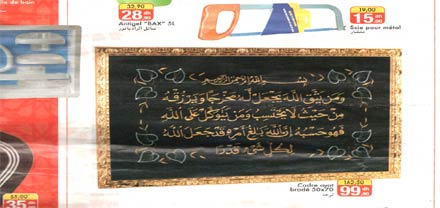 de bain
32,90
28 dh
,00
Antigel "BAX" 5L
سائل الرادياتور
19,00
15 dh
Scie pour métal
منشار
بسم الله الرحمن الرحيم
ومن يتق الله يجعل له مخرجا ويرزقه
من حيث لا يحتسب ومن يتوكل على الله
فهو حسبه إن الله بالغ أمره قد جعل الله
لكل شيء قدرا
55,00
35
Cadre ayat
brodé 50x70
162,50
99